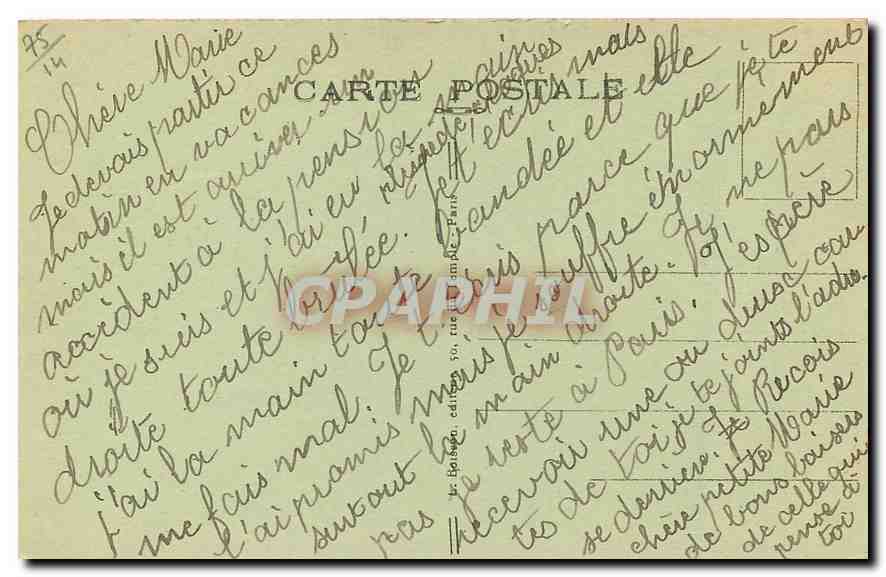 75
14
CARTE POSTALE
Chère Marie
Je devais partir ce
matin en vacances
mais il est arrivé un
accident à la pension
où je suis et j'ai eu la main
droite toute brûlée. Jacques
j'ai la main toute bandée et elle
me fais mal. Je t'écris mais
l'ai promis mais je souffre énormément
surtout la main droite. Je ne pars
pas je reste à Paris. J'espère
recevoir une ou deux car
tes de toi je te joints l'adre.
se derrière. Je Recois
chère petite Marie
de bons baisers
de celle qui
pense à
toi
L. Boisson, éditeur, 50, rue du Temple - Paris
CPAPHIL